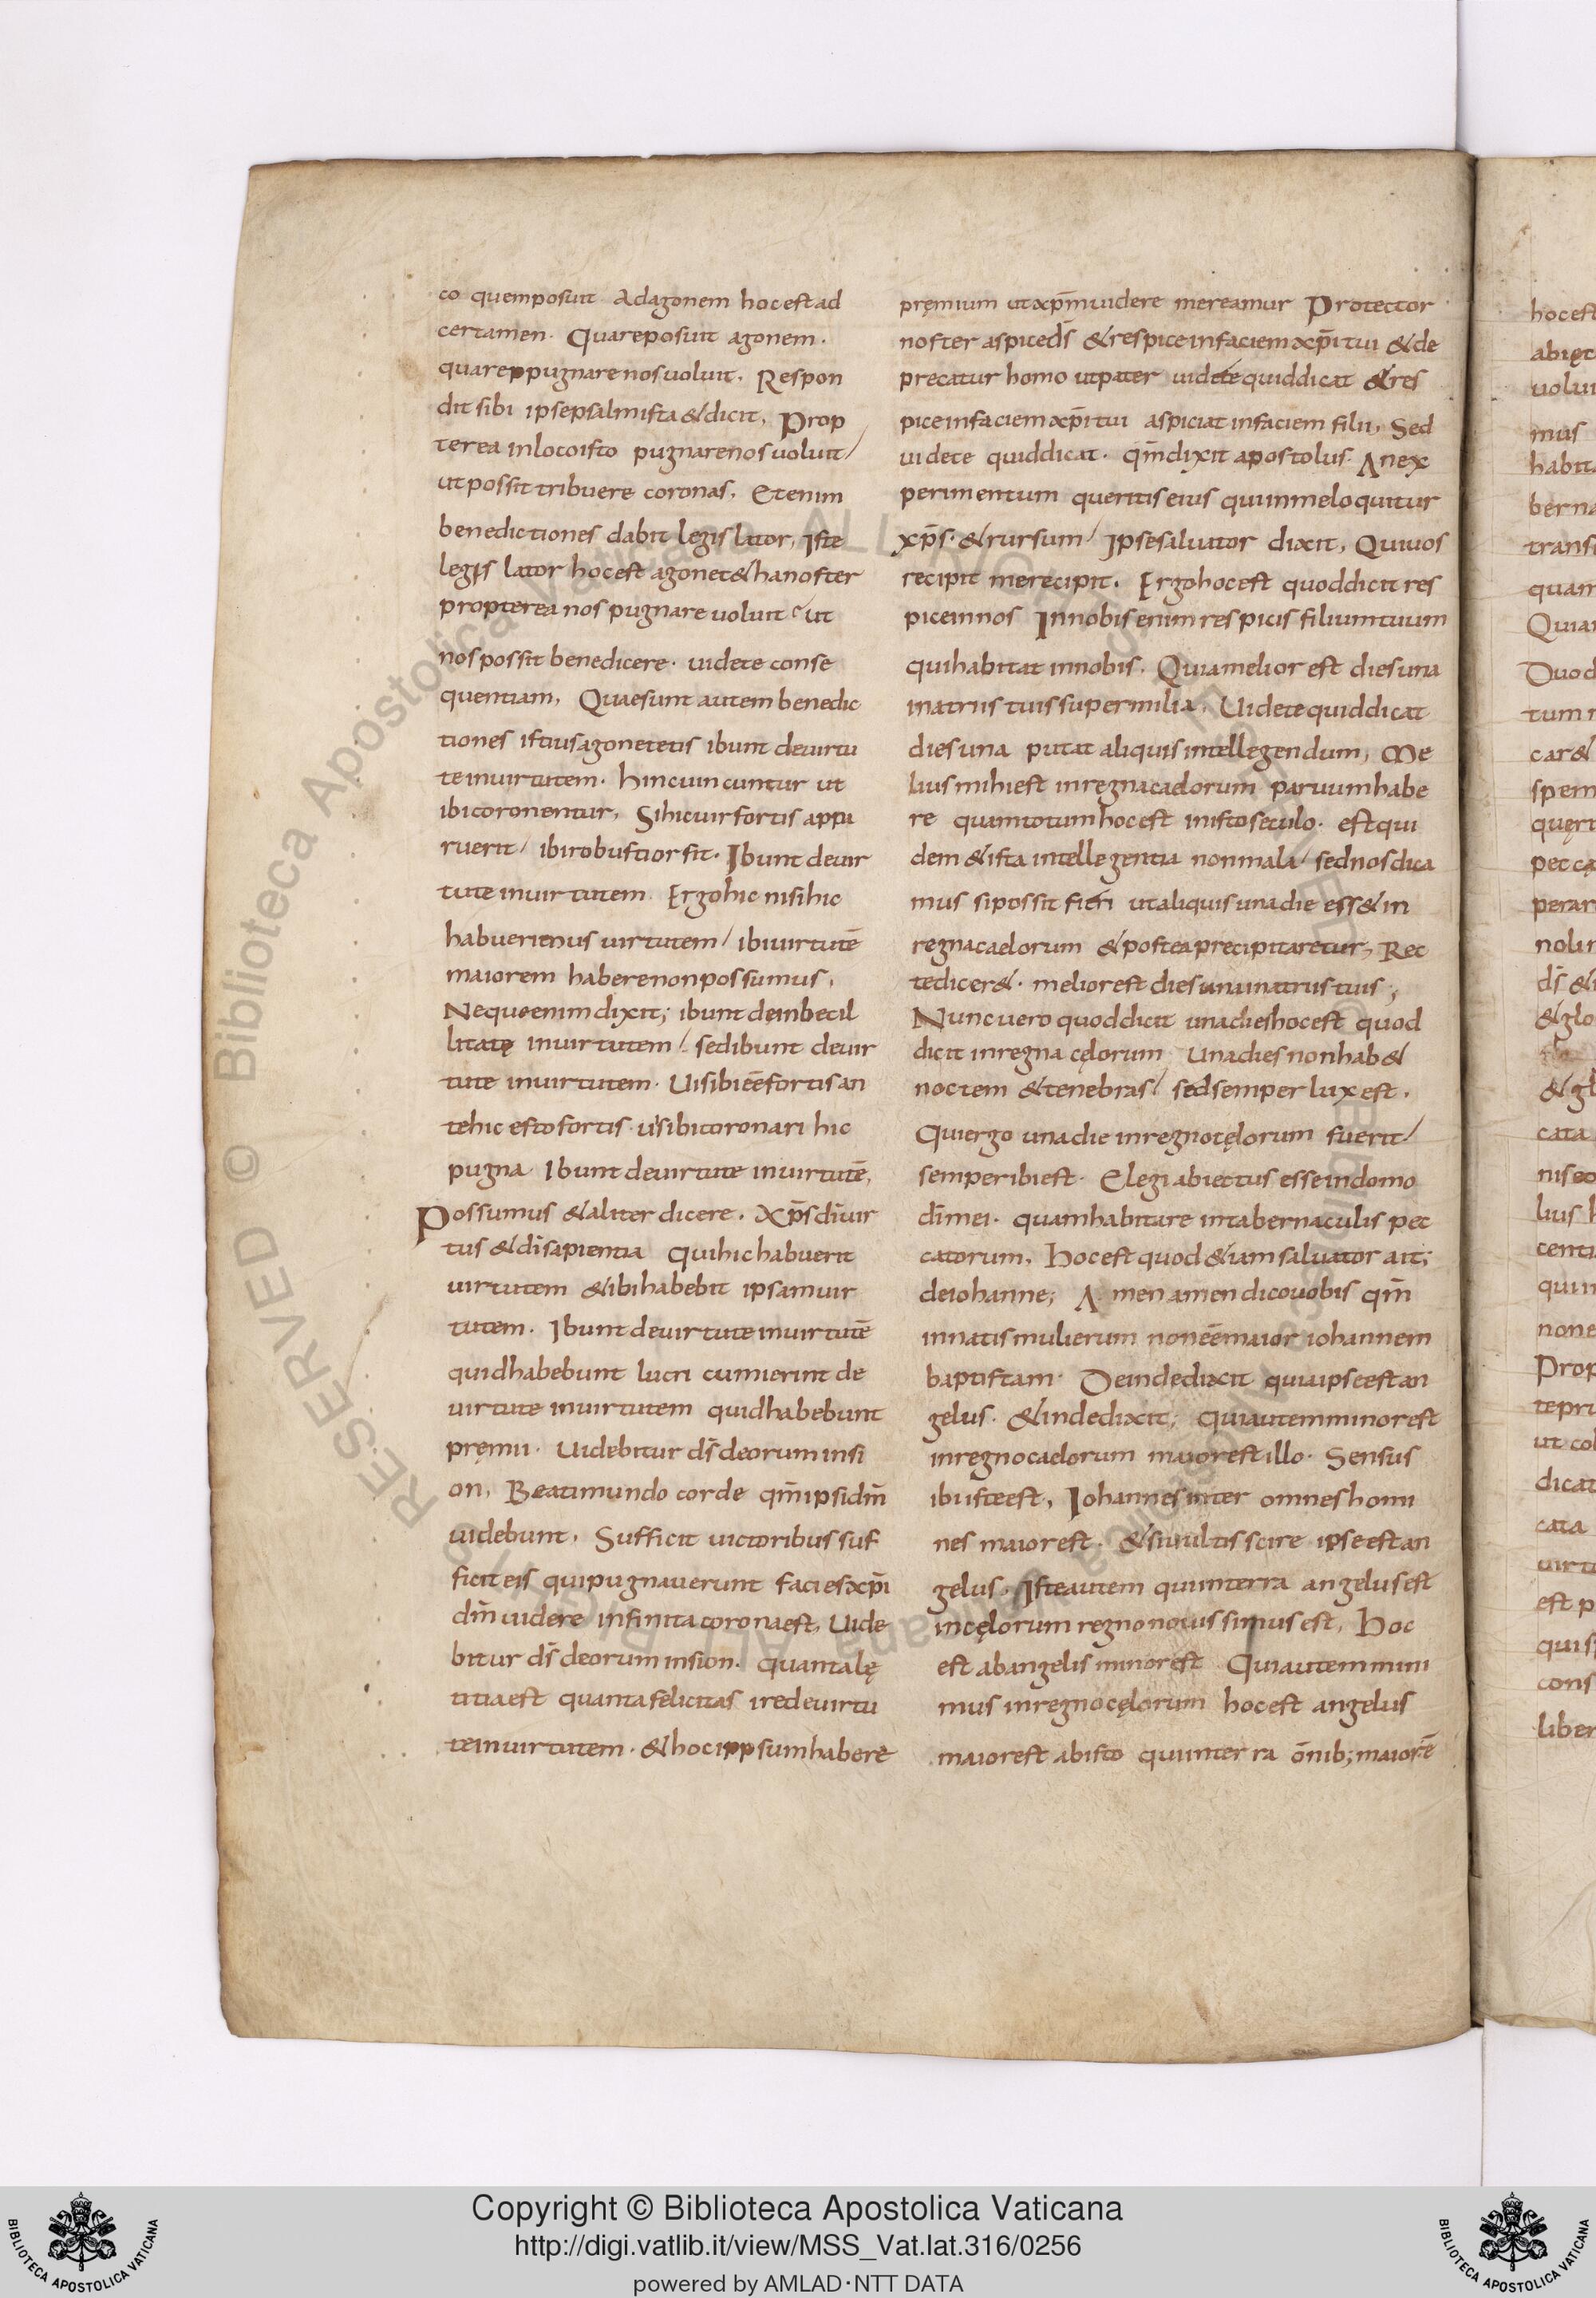 co quemposuit Adagonem hocestad
certamen. Quareposuit agonem.
quareppugnarenosuoluit. Respon
dit sibi ipsepsalmista &dicit, Prop
terea inlocoisto pugnarenosuoluit/
ut possit tribuere coronas. Etenim
benedictiones dabit legis lator, Iste
legis lator hocest agonet&hanoster
propterea nos pugnare uoluit / ut
nospossit benedicere. uidete conse
quentiam, Quaesunt autem benedic
tiones istiusagonetetis ibunt deuirtu
teinuirtutem. hincuincuntur ut
ibicoronentur, Sihicuirfortis appa
ruerit/ ibirobustiorsit. Ibunt deuir
tute inuirtutem Ergohic nisihic
habuerimus uirtutem/ ibiuirtutē
maiorem haberenonpossumus,
Nequeenimdixit; ibunt deinbecil
litatę inuirtutem/ sedibunt deuir
tute inuirtutem. Uisibieēfortisan
tehic estofortis. uisibicoronari hic
pugna Ibunt deuirtute inuirtutē,
Possumus &aliter dicere. Xp̄sdīuir
tus &dīsapientia Quihichabuerit
uirtutem &ibihabebit ipsamuir
tutem. Ibunt deuirtuteinuirtutē
quidhabebunt lucri cumierint de
uirtute inuirtutem quidhabebunt
pręmii. Uidebitur ds̄ deoruminsi
on, Beatimundo corde qm̄ipsidm̄
uidebunt, Sufficit uictoribus suf
ficit eis quipugnauerunt faciesxp̄i
dm̄ uidere infinita coronaest, Uide
bitur ds̄ deorum insion. Quantalę
titiaest quantafelicitas iredeuirtu
teinuirtutem. &hocippsumhabere
pręmium utxp̄muidere mereamur Protector
noster aspiceds̄ &respiceinfaciemxp̄i tui &de
precatur homo utpater uidetequiddicat &res
piceinfaciemxp̄i tui aspiciat infaciem filii, Sed
uidete quiddicat. qm̄dixit apostolus. Anex
perimentum queritiseius quiinmeloquitur
xp̄s. &rursum/ Ipsesaluator dixit, Quiuos
recipit merecipit. Ergohocest quoddicit res
piceinnos Innobisenimrespicis filiumtuum
quihabitat innobis. Quiamelior est diesuna
inatriis tuissupermilia, Uidetequiddicat
diesuna putat aliquisintellegendum, Me
liusmihiest inregnacaelorum paruumhabe
re quamtotumhocest inistoseculo. estqui
dem &ista intellegentia nonmala/ sednosdica
mus sipossit fieri utaliquisunadie ess&in
regnacaelorum &posteaprecipitaretur, Rec
tedicer&. meliorest diesunainatriistuis;
Nuncuero quoddicit unadieshocest quod
dicit inregna cęlorum Unadiesnonhab&
noctem &tenebras/ sedsemper luxest.
Quiergo unadie inregnocęlorum fuerit/
semperibiest. Elegi abiectus esseindomo
dīmei. quamhabitare intabernaculis pec
catorum, Hocestquod&iamsaluator ait;
deiohanne; A menamendicouobis qm̄
innatismulierum noneēmaior iohannem
baptistam. Deindedixit quiaipseestan
gelus. &indedixit; quiautemminorest
inregnocaelorum maiorestillo. Sensus
ibiisteest, Iohannesinter omneshomi
nes maiorest. &siuultis scire ipseestan
gelus. Isteautem quiinterra angelusest
incęlorumregnonouissimusest, Hoc
est abangelis minorest Quiautemmini
mus inregnocęlorum hocest angelus
maiorest abisto quiinterra ōnib;maiorē
hocest
abięt
uolui
mus
habit
berna
transi
quam
Quia
Quod
tum
car&
spem
quęri
peccą
perar
nolin
ds̄ &
&glo
&gl
cata
nis
lius h
centi
quin
none
Prop
tepri
ut col
dicat
cata
uirtu
est p
quis
cons
liber
Copyright © Biblioteca Apostolica Vaticana
http://digi.vatlib.it/view/MSS_Vat.lat.316/0256
powered by AMLAD·NTT DATA
BIBLIOTECA APOSTOLICA VATICANA
BIBLIOTECA APOSTOLICA VATICANA